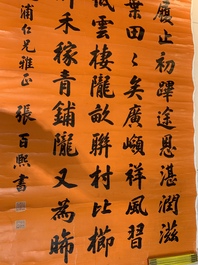 履止初蹕途恩湛潤滋
葉田〻矣廣巘祥風習
低雲棲隴畝聯村比櫛
禾稼青鋪隴又為晞
浦仁兄雅正
張百熙書